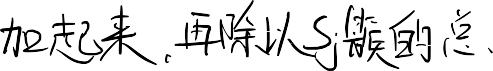 加起来,再除以Sj类的总、